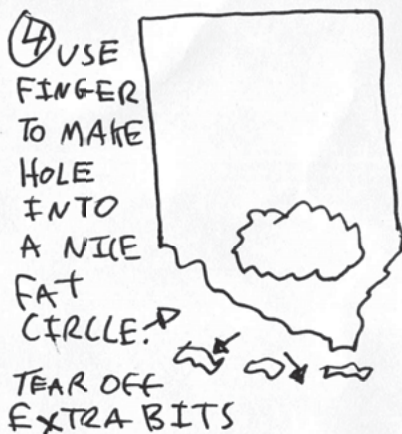 ④ USE
FINGER
TO MAKE
HOLE
INTO
A NICE
FAT
CIRCLE.
TEAR OFF
EXTRA BITS